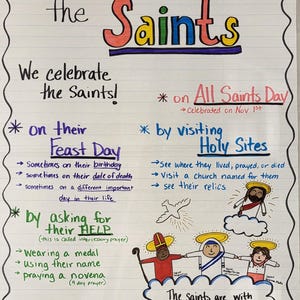 the Saints
We celebrate
the Saints!
* on All Saints Day
→ Celebrated on Nov 1st
* on their
Feast Day
→ sometimes on their birthday
→ sometimes on their date of death
→ sometimes on a different important
day in their life
* by visiting
Holy Sites
→ See where they lived, prayed, or died
→ Visit a church named for them
→ see their relics
* by asking for
their HELP
(this is called intercessory prayer)
→ Wearing a medal
→ using their name
→ praying a novena
(9 day prayer)
The Saints are with